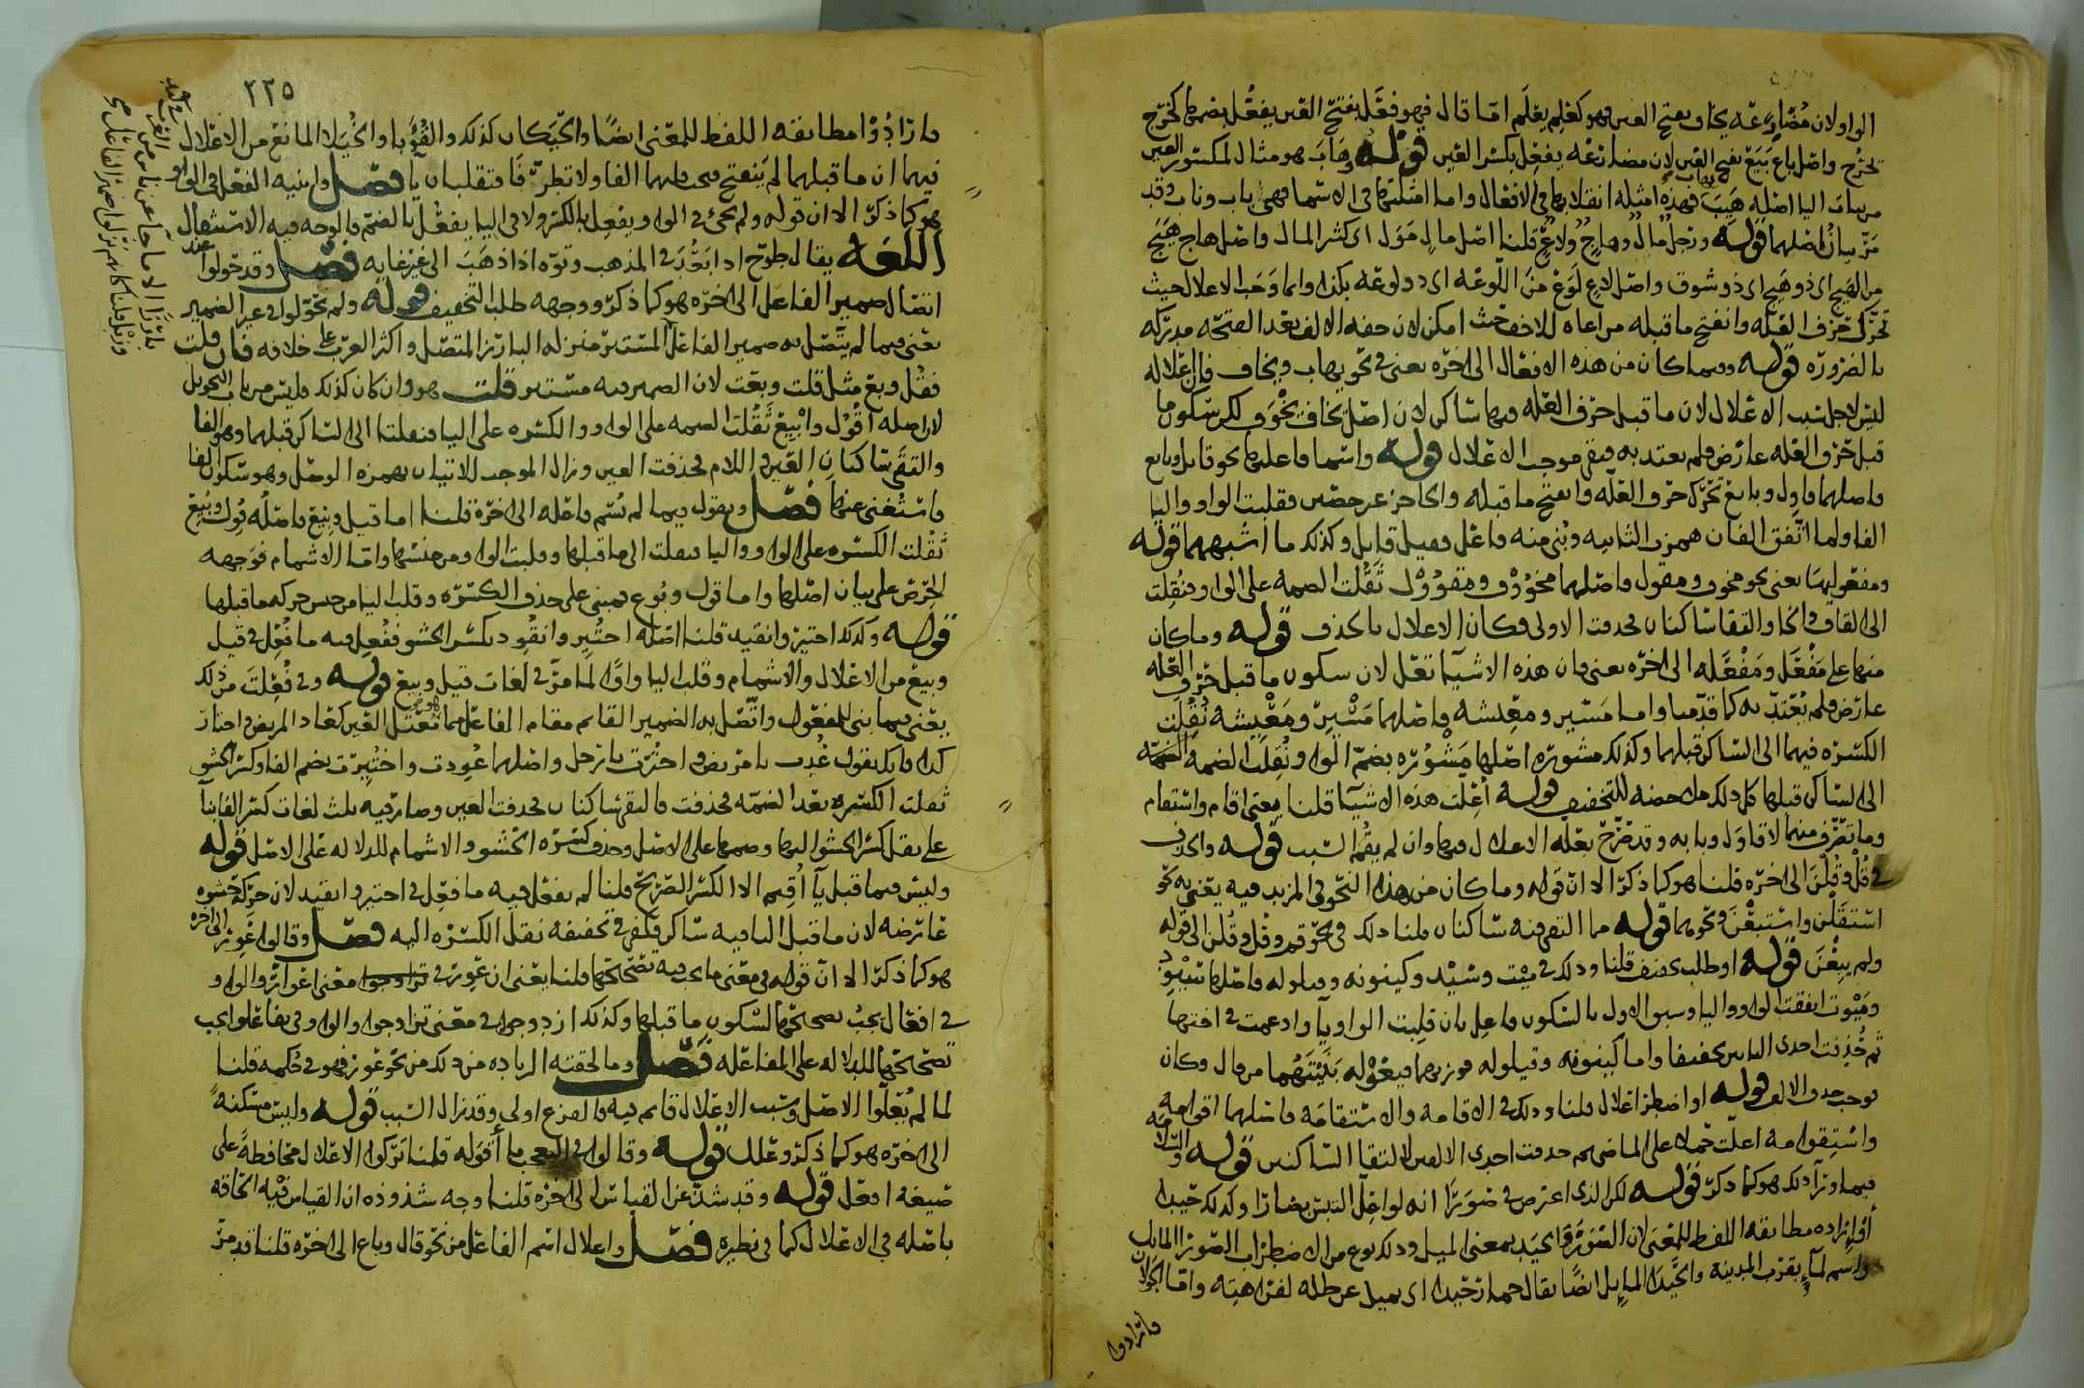 الواو لان مضارعه يخاف بفتح العين فهو كعلم يعلم اما قال فهو فعل بفتح العين يفعل بضمها كخرج
يخرج واصل باع بيع بفتح العين لان مضارعه يفعل بكسر العين قوله وهاب هو مثال لمكسور العين
من بنات اليا اصله هيب فهذه امثلة انقلابها في الافعال واما امثلتها في الاسما فهي باب وناب وقد
مر بيان اصلهما قوله ورجل مال وهاج ولاع قلنا اصل مال مول اي كثر المال واصل هاج هيج
من الهيج اي ذو هيج اي ذو شوق واصل لاع لوع من اللوعه اي ذو لوعه بكذا وانما وجب الاعلال حيث
تحرك حرف العله وانفتح ما قبله مراعاه للاخف حيث امكن لان خفه الالف بعد الفتحه مدركه
بالضروره قوله وفيما كان من هذه الافعال الى اخره يعني في نحو يهاب ويخاف فان اعلاله
ليس لاجل سبب الاعلال لان ما قبل حرف العله فيها ساكن لان اصل يخاف يخوف لكن سكون ما
قبل حرف العله عارض فلم يعتد به فبقي موجب الاعلال قوله واسما فاعليها نحو قايل وبايع
فاصلهما قاول وبايع تحرك حرف العله وانفتح ما قبله والحاجز غير حصين فقلبت الواو واليا
الفا ولما اتفق الفان همزت الثانيه وبني منه فاعل فقيل قايل وكذلك ما اشبههما قوله
ومفعوليهما يعني نحو مخوف ومقول فاصلهما مخووف ومقوول ثقلت الضمه على الواو فنقلت
الى القاف والخا والتقا ساكنان فحذفت الاولى فكان الاعلال بالحذف قوله وما كان
منها على مفعل ومفعله الى اخره يعني فان هذه الاشيا تعل لان سكون ما قبل حرف العله
عارض فلم يعتد به كما قدمنا واما مسير ومعيشه فاصلهما مسير ومعيشه نقلت
الكسره فيهما الى الساكن قبلهما وكذلك مشوره اصلها مشوره بضم الواو ونقلت الضمه
الى الساكن قبلها كل ذلك ملاحظه للتخفيف قوله اعلت هذه الاشيا قلنا يعني اقام واستقام
وما تصرف منهما لا قاول وبابه وقد صرح بعله الاعلال فيها وان لم يقم السبب قوله والحذف
في قل وقلن الى اخره قلنا هو كما ذكر الا ان قوله وما كان من هذا النحو في المزيد فيه يعني به نحو
استقلن واستبعن ونحوهما قوله مما التقى فيه ساكنان قلنا ذلك في نحو قم وقل وقلن الى قوله
ولم يبعن قوله او طلب تخفيف قلنا وذلك في ميت وسيد وكينونه وقيلوله فاصلها سيود
وميوت اتفقت الواو واليا وسبق الاول بالسكون فاعل بان قلبت الواو يا وادغمت في اختها
ثم حذفت احدى الياين تخفيفا واما كينونه وقيلوله فوزنهما فيعلوله بنيتهما من قال وكان
فوجب حذف الالف قوله او اضطر اعلال قلنا وذلك في الاقامه والاستقامه فاصلهما اقوامه
واستقوامه اعلت حملا على الماضي ثم حذفت احدى الالفين لالتقا الساكنين قوله والسلامه
فيما ورا ذلك هو كما ذكر قوله لكن الذي اعترض في صورا انه لو اعل التبس بصارا وكذلك حيدا
مطابقه اللفظ للمعنى لان الصوره والحيد بمعنى الميل وذلك نوع من الاضطراب الصورا المايل
واسم لما بقرب المدينه والحيدا المايل ايضا يقال حمار حيدا اي يميل عن ظله لفراهيته واما الجولان
فارادوا
٢٢٥
فارادوا مطابقه اللفظ للمعنى ايضا والحيكان كذلك والقوبا والخيلا المانع من الاعلال
فيهما ان ما قبلهما لم ينفتح فيجعلهما الفا ولا نظره فا فتقلبان يا فصل وابنيه الفعل في الواو
هو كما ذكر الا ان قوله ولم يجئ في الواو يفعل بالكسر ولا في اليا يفعل بالضم فالوجه فيه الاستثقال
اللغه يقال طوح اذا ابعد في المذهب وتوه اذا ذهب الى غير غايه فصل وقد حولوا عند
اتصال ضمير الفاعل الى اخره هو كما ذكر ووجهه طلب التخفيف قوله ولم يحولوا في غير الضمير
يعني فيما لم يتصل به ضمير الفاعل المستتر منزله البارز المتصل واكثر العرب على خلافه فان قلت
فقل وبع مثل قلت وبعت لان الضمير فيه مستتر قلت هو وان كان كذلك فليس من باب التحويل
لان اصله اقول وابيع ثقلت الضمه على الواو والكسره على اليا فنقلتا الى الساكن قبلهما وهو الفا
والتقى ساكنان العين واللام فحذفت العين وزال الموجب للاتيان بهمزه الوصل وهو سكون الفا
فاستغنى عنها فصل ويقول فيما لم يسم فاعله الى اخره قلنا اما قيل وبيع فاصله قول وبيع
ثقلت الكسره على الواو واليا فنقلت الى ما قبلها وقلبت الواو من جنسها واما الاشمام فوجهه
الحرص على بيان اصلها واما قول وبوع فمبني على حذف الكسره وقلب اليا من جنس حركه ما قبلها
قوله وكذلك اختير وانقيد قلنا اصله اختير وانقود بكسر الحشو ففعل فيه ما فعل في قيل
وبيع من الاعلال والاشمام وقلب اليا واوا لما مر في لغات قيل وبيع قوله وفي فعلت من ذلك
يعني فيما بني للمفعول واتصل به الضمير القايم مقام الفاعل مما تعتل العين كعاد المريض واختار
كذا فانك تقول عدت يا مريض واخترت يا رجل واصلهما عودت واختيرت بضم الفا وكسر الحشو
ثقلت الكسره بعد الضمه فحذفت فالتقى ساكنان فحذفت العين وصار فيه ثلث لغات كسر الفا بنا
على نقل كسر الحشو اليها وضمها على الاصل وحذف كسره الحشو والاشمام للدلاله على الاصل قوله
وليس فيما قبل يا اقيم الا الكسر الصريح قلنا لم يفعل فيه ما فعل في اختير وانقيد لان حركه حشوه
عارضه لان ما قبل اليا فيه ساكن فكفى في تخفيفه نقل الكسره اليه فصل وقالوا عور الى اخره
هو كما ذكر الا ان قوله في معنى ما يجب فيه تصحيحها قلنا يعني ان عور في معنى اعوار والواو
في افعال يجب تصحيحها لسكون ما قبلها وكذلك ازدوجوا في معنى تزاوجوا والواو في تفاعلوا يجب
تصحيحها للدلاله على المفاعله فصل وما لحقته الزياده من ذلك من نحو عور فهو في حكمه قلنا
لما لم يعلوا الاصل وسبب الاعلال قايم فيه فالفرع اولى وقد زال السبب قوله وليس مسكنه
الى اخره هو كما ذكر وعلل قوله وقالوا في التعجب ما اقوله قلنا تركوا الاعلال محافظه على
صيغه افعل قوله وقد شذ عن القياس الى اخره قلنا وجه شذوذه ان القياس فيه الحاقه
باصله في الاعلال كما في نظيره فصل واعلال اسم الفاعل من نحو قال وباع الى اخره قلنا قد مر